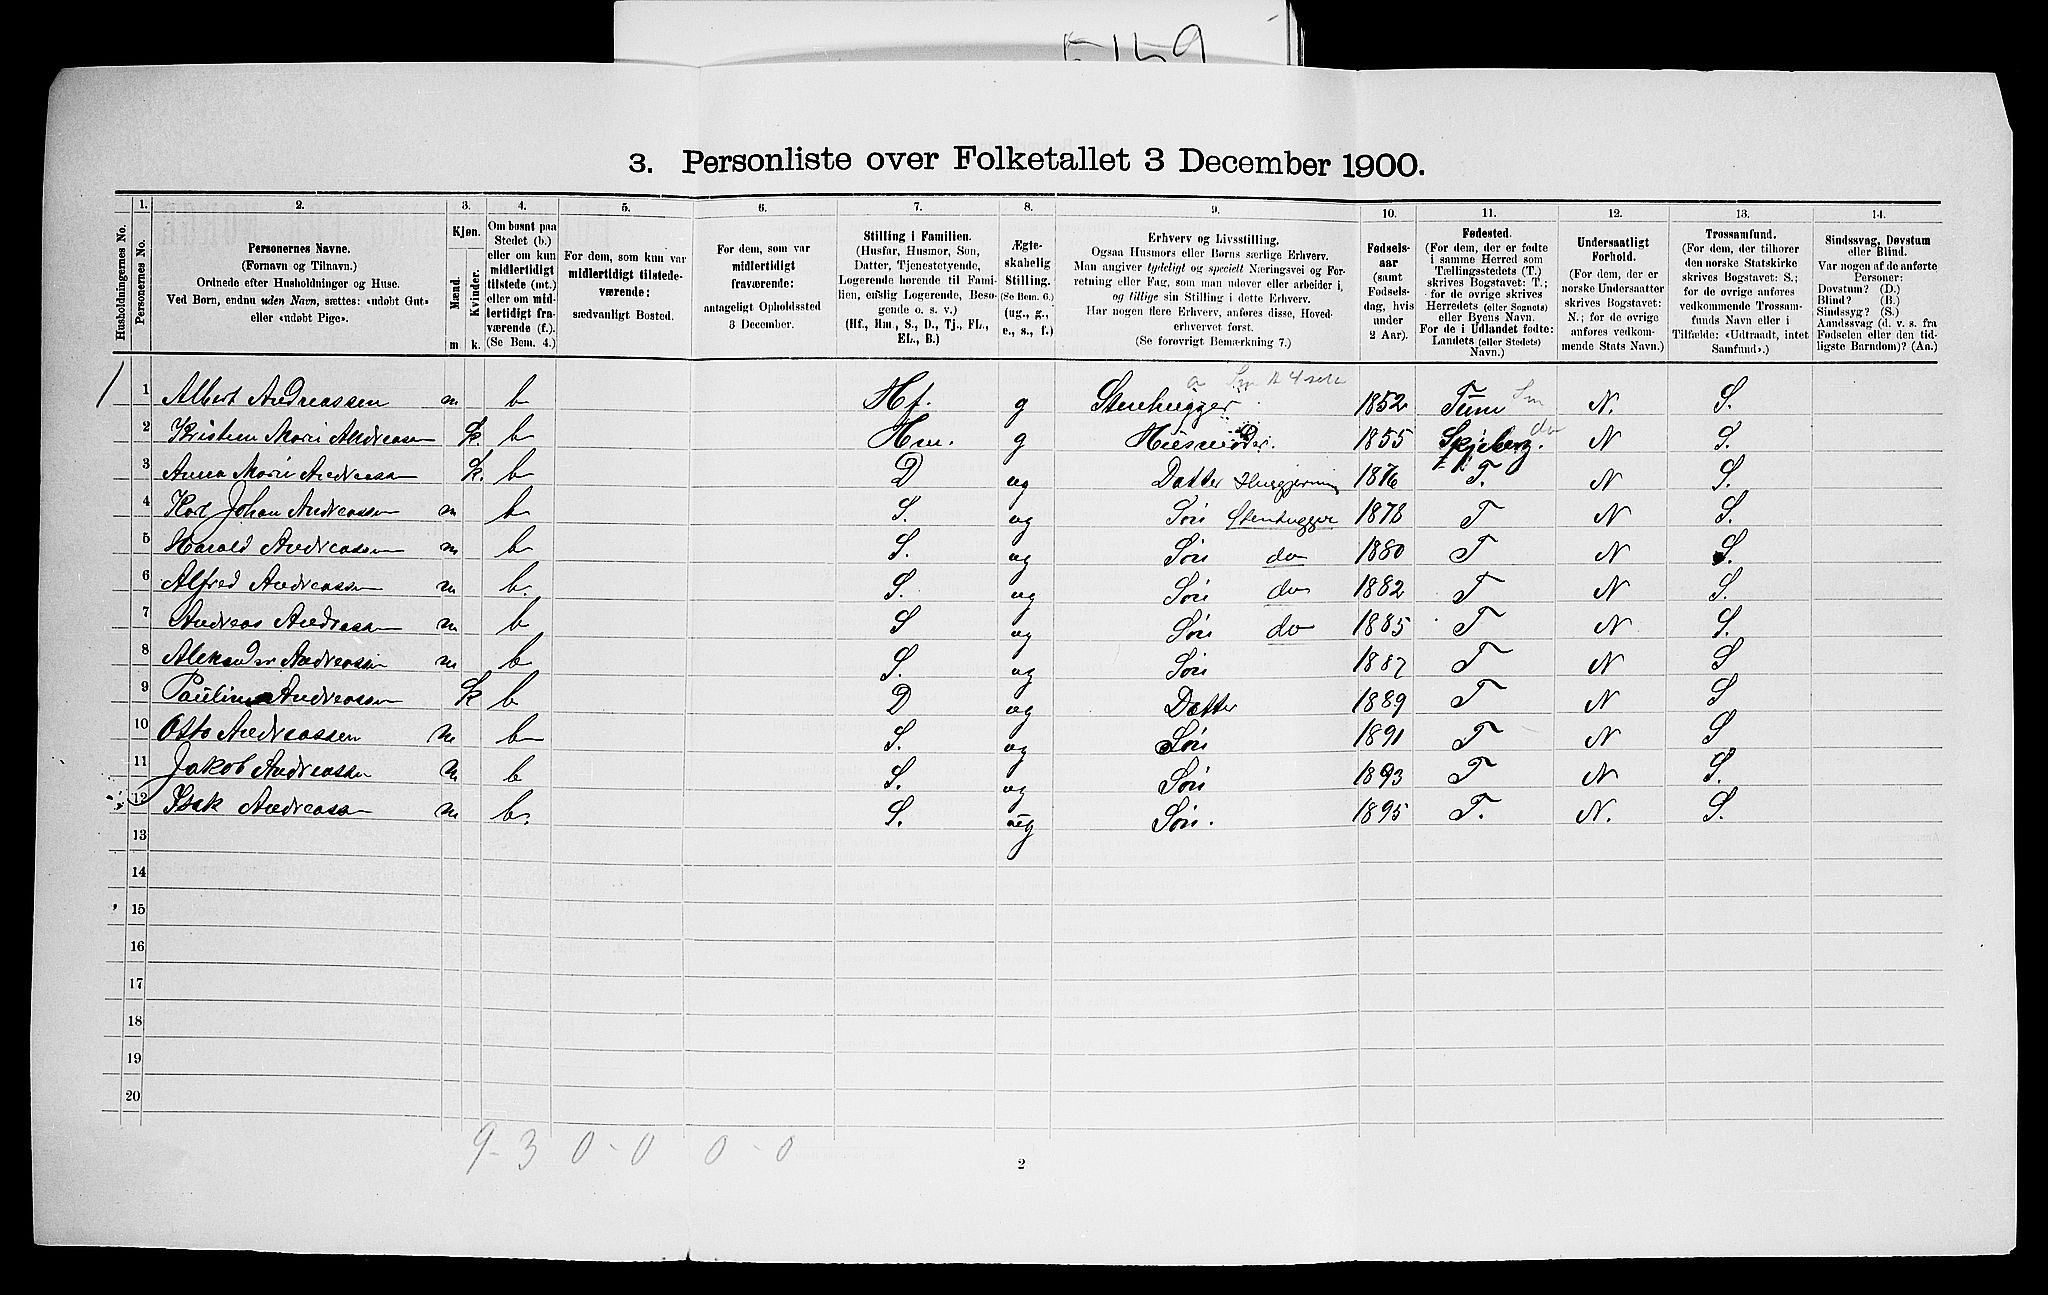 5159
3. Personliste over Folketallet 3 December 1900.
Husholdningernes No.
1. Personernes No.
2. Personernes Navne.
(Fornavn og Tilnavn.)
Ordnede efter Husholdninger og Huse.
Ved Børn, endnu uden Navn, sættes: «udøbt Gut»
eller «udøbt Pige».
3. Kjøn.
Mænd. Kvinder.
m k.
4. Om bosat paa
Stedet (b.)
eller om kun
midlertidigt
tilstede (mt.)
eller om mid-
lertidigt fra-
værende (f.).
(Se Bem. 4.)
5. For dem, som kun var
midlertidigt tilstede-
værende:
sædvanligt Bosted.
6. For dem, som var
midlertidigt
fraværende:
antageligt Opholdssted
3 December.
7. Stilling i Familien.
(Husfar, Husmor, Søn,
Datter, Tjenestetyende,
Logerende hørende til Fami-
lien, enslig Logerende, Besø-
gende o. s. v.)
(Hf., Hm., S., D., Tj., FL.,
EL., B.)
8. Ægte-
skabelig
Stilling.
(Se Bem. 6.)
(ug., g.,
e., s., f.)
9. Erhverv og Livsstilling.
Ogsaa Husmors eller Børns særlige Erhverv.
Man angiver tydeligt og specielt Næringsvei og For-
retning eller Fag, som man udøver eller arbeider i,
og tillige sin Stilling i dette Erhverv.
Har nogen flere Erhverv, anføres disse, Hoved-
erhvervet først.
(Se forøvrigt Bemærkning 7.)
10. Fødsels-
aar
(samt
Fødsels-
dag, hvis
under
2 Aar).
11. Fødested.
(For dem, der er fødte
i samme Herred som
Tællingsstedets (T.)
skrives Bogstavet: T.;
for de øvrige skrives
Herredets (eller Sognets)
eller Byens Navn.
For de i Udlandet fødte:
Landets (eller Stedets)
Navn.)
12. Undersaatligt
Forhold.
(For dem, der er
norske Undersaatter
skrives Bogstavet:
N.; for de øvrige
anføres vedkom-
mende Stats Navn.)
13. Trossamfund.
(For dem, der tilhører
den norske Statskirke
skrives Bogstavet: S.;
for de øvrige anføres
vedkommende Trossam-
funds Navn eller i
Tilfælde: «Udtraadt, intet
Samfund».)
14. Sindssvag, Døvstum
eller Blind.
Var nogen af de anførte
Personer:
Døvstum? (D.)
Blind? (B.)
Sindssyg? (S.)
Aandssvag (d. v. s. fra
Fødselen eller den tid-
ligste Barndom)? (Aa.)
1 1 Albert Andreassen m b Hf. g Stenhugger 1852 Tune N. S.
2 Kristine Marie Andreasen k b Hm. g Husmoder. 1855 Skjeberg. do N S.
3 Anna Marie Andreasen k. b D ug Datter Husgjerning 1876 T. N S.
4 Karl Johan Andreassen m b S. ug Søn Stenhugger 1878 T N S.
5 Harald Andreassen m b S. ug Søn do 1880 T N S.
6 Alfred Andreassen m b. S. ug Søn do 1882 T N S.
7 Andreas Andreasen m b S ug Søn do 1885 T N S.
8 Aleksander Andreassen m b S. ug Søn 1887 T N S
9 Pauline Andreassen k b D ug Datter 1889 T N S
10 Otto Andreassen m b S. ug Søn 1891 T N S
11 Jakob Andreassen m b S. ug Søn 1893 T N S.
12 Isak Andreassen m b. S. ug Søn. 1895 T. N. S.
13
14
15
16
17
18
19
20
9-3 0-0 0-0
2